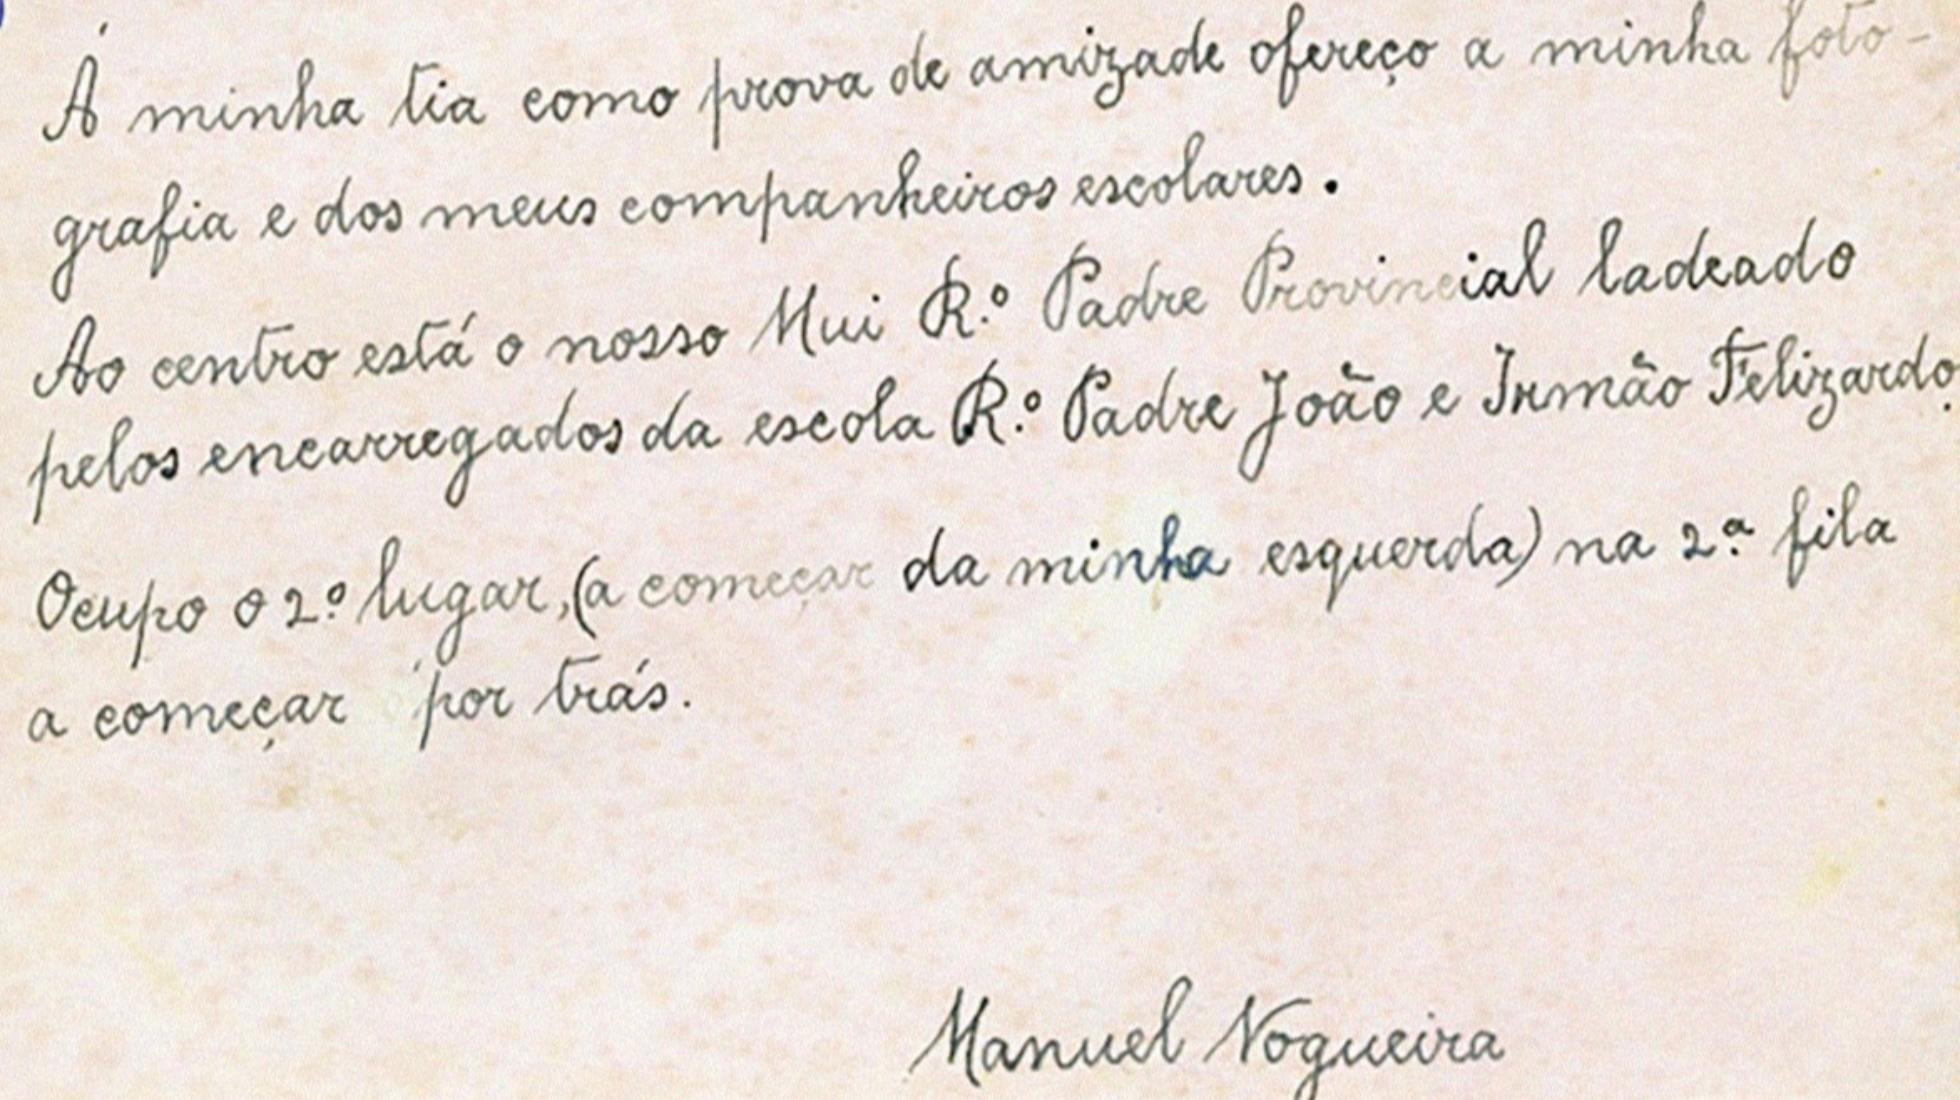 Á minha tia como prova de amizade ofereço a minha foto-
grafia e dos meus companheiros escolares.
Ao centro está o nosso Mui R.º Padre Provincial ladeado
pelos encarregados da escola R.º Padre João e Irmão Felizardo.
Ocupo o 2.º lugar, (a começar da minha esquerda) na 2.ª fila
a começar por trás.
Manuel Nogueira